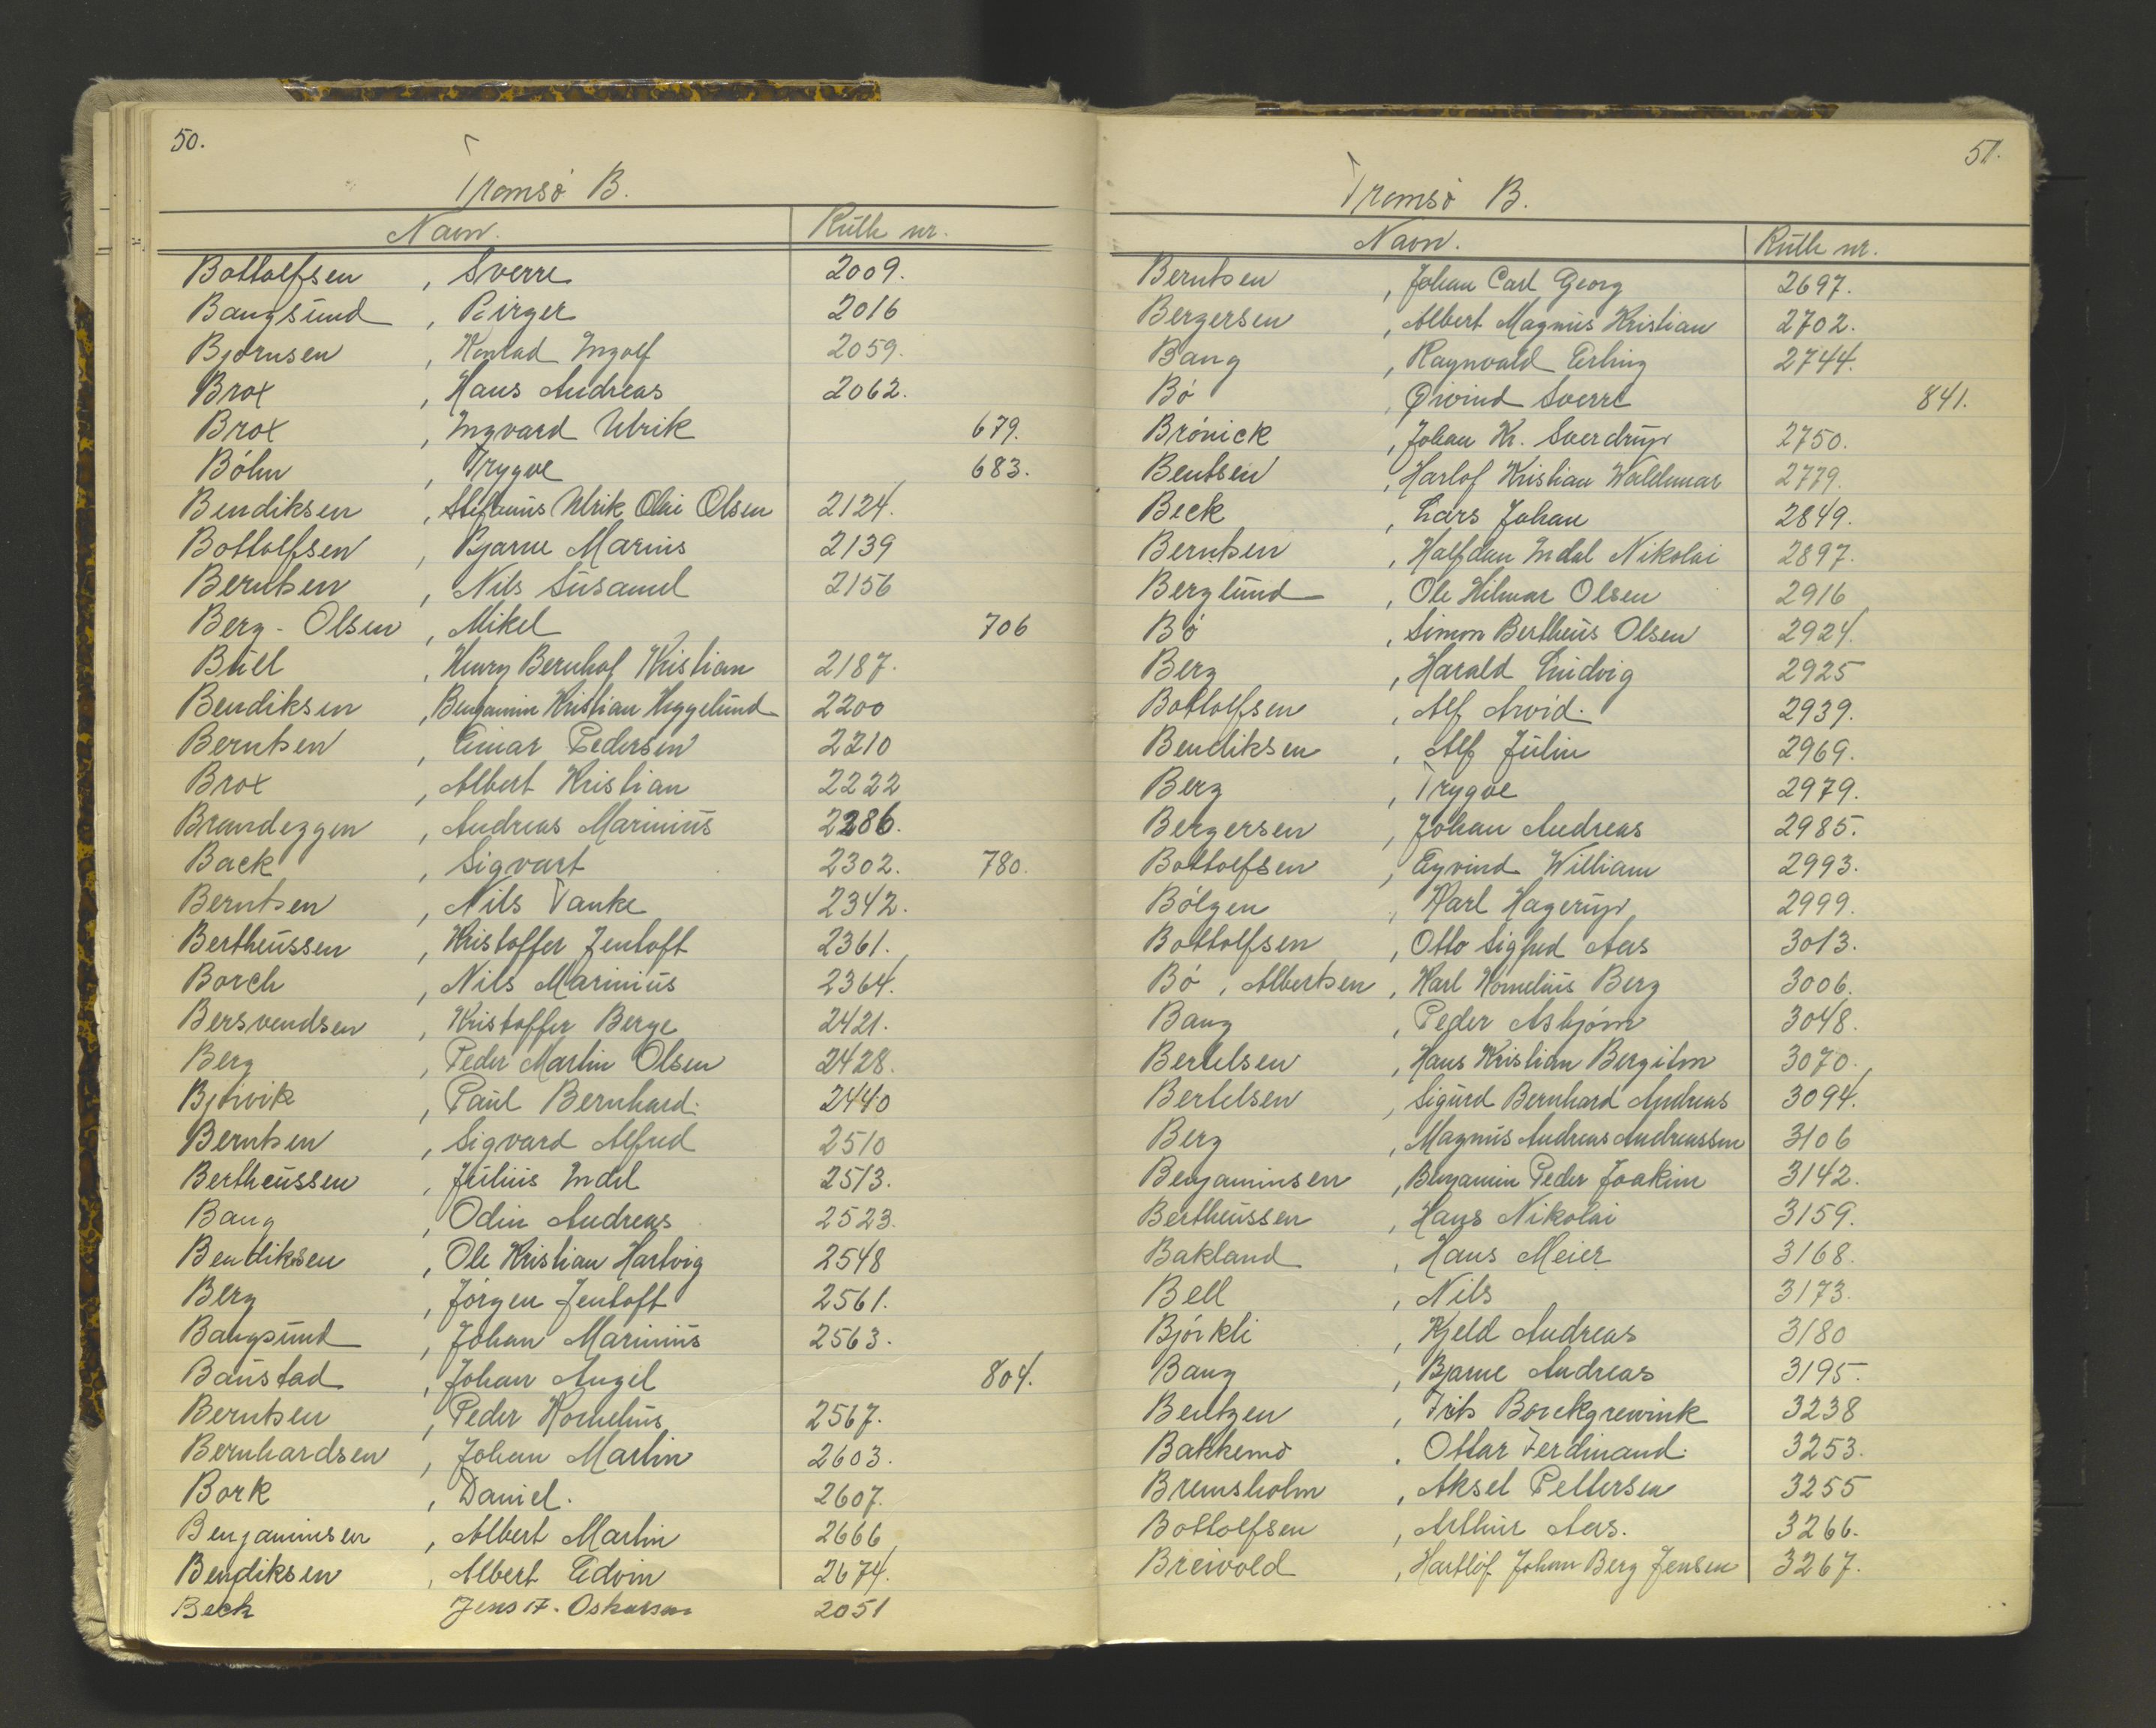 50.
Tromsø B.
Navn. Rulle nr.
Bottolfsen , Sverre 2009.
Bangsund , Birger 2016
Bjørnsen , Konrad Ingolf 2059.
Brox , Hans Andreas 2062.
Brox , Ingvard Ulrik 679.
Bøhn , Trygve 683.
Bendiksen , Stefanus Ulrik Olai Olsen 2124.
Bottolfsen , Bjarne Marius 2139
Berntsen , Nils Susamel 2156
Berg - Olsen , Mikel 706
Bull , Henry Bernhof Kristian 2187.
Bendiksen , Benjamin Kristian Heggelund 2200
Berntsen , Einar Pedersen 2210
Brox , Albert Kristian 2222
Brandeggen , Andreas Marinius 2286.
Back , Sigvart 2302. 780.
Berntsen , Nils Tanke 2342.
Bertheussen , Kristoffer Jentoft 2361.
Borch , Nils Marinius 2364.
Bersvendsen , Kristoffer Berge 2421.
Berg , Peder Martin Olsen 2428.
Bjervik , Paul Bernhard. 2440
Berntsen , Sigvard Alfred 2510
Bertheussen , Julius Indel 2513.
Bang , Odin Andreas 2523.
Bendiksen , Ole Kristian Hartvig 2548
Berg , Jørgen Jentoft 2561.
Bangsund , Johan Marinius 2563.
Baustad , Johan Angel 804.
Berntsen , Peder Kornelius 2567.
Bernhardsen , Johan Martin 2603.
Bork , Daniel. 2607.
Benjaminsen , Albert Martin 2666
Bendiksen , Albert Edvin 2674.
Beck Jens F. Oskarsen 2051
51.
Tromsø B.
Navn. Rulle nr.
Berntsen , Johan Carl Georg 2697.
Bergersen , Albert Magnus Kristian 2702.
Bang , Ragnvald Erling 2744.
Bø , Øivind Sverre 841.
Brønick , Johan Kr. Sverdrup 2750.
Bentsen , Harlof Kristian Waldemar 2779.
Beck , Lars Johan 2849.
Berntsen , Halfdan Indal Nikolai 2897.
Berglund , Ole Hilmar Olsen 2916
Bø , Simon Bertheus Olsen 2924.
Berg , Harald Ludvig 2925
Bottolfsen , Alf Arvid. 2939.
Bendiksen , Alf Julin 2969.
Berg , Trygve 2979.
Bergersen , Johan Andreas 2985.
Bottolfsen , Eyvind William 2993.
Bølgen , Karl Hagerup 2999.
Bottolfsen , Otto Sigfred Aas 3013.
Bø , Albertsen , Karl Kornelius Berg 3006.
Bang , Peder Asbjørn 3048.
Bertelsen , Hans Kristian Bergiton 3070.
Bertelsen , Sigurd Bernhard Andreas 3094.
Berg , Magnus Andreas Andreassen 3106
Benjaminsen , Benjamin Peder Joakim 3142.
Bertheussen , Hans Nikolai 3159.
Bakland , Hans Meier 3168.
Bell , Nils 3173.
Bjørkli , Kjeld Andreas 3180
Bang , Bjarne Andreas 3195.
Bentzen , Frits Borckgrewink 3238
Bakkemo , Ottar Ferdinand. 3253.
Bremsholm , Aksel Pettersen 3255
Bottolfsen , Arthur Aas. 3266.
Breivold , Hartlof Johan Berg Jensen 3267.